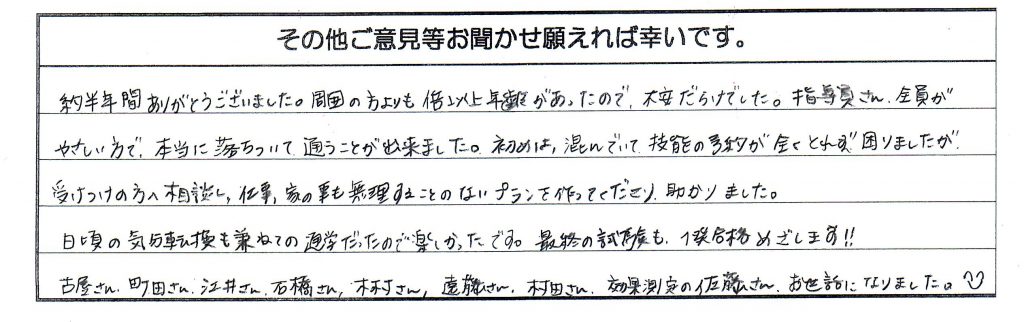 その他ご意見等お聞かせ願えれば幸いです。
約半年間ありがとうございました。周囲の方よりも倍以上年齢があったので、不安だらけでした。指導員さん、全員が
やさしい方で、本当に落ちついて通うことが出来ました。初めは、混んでいて、技能の予約が全くとれず困りましたが、
受けつけの方へ相談し、仕事、家の事も無理することのないプランを作ってくださり、助かりました。
日頃の気分転換も兼ねての通学だったので楽しかったです。最終の試験も、1発合格めざします!!
古屋さん、町田さん、江井さん、石橋さん、木村さん、遠藤さん、村田さん、効果測定の佐藤さん、お世話になりました。